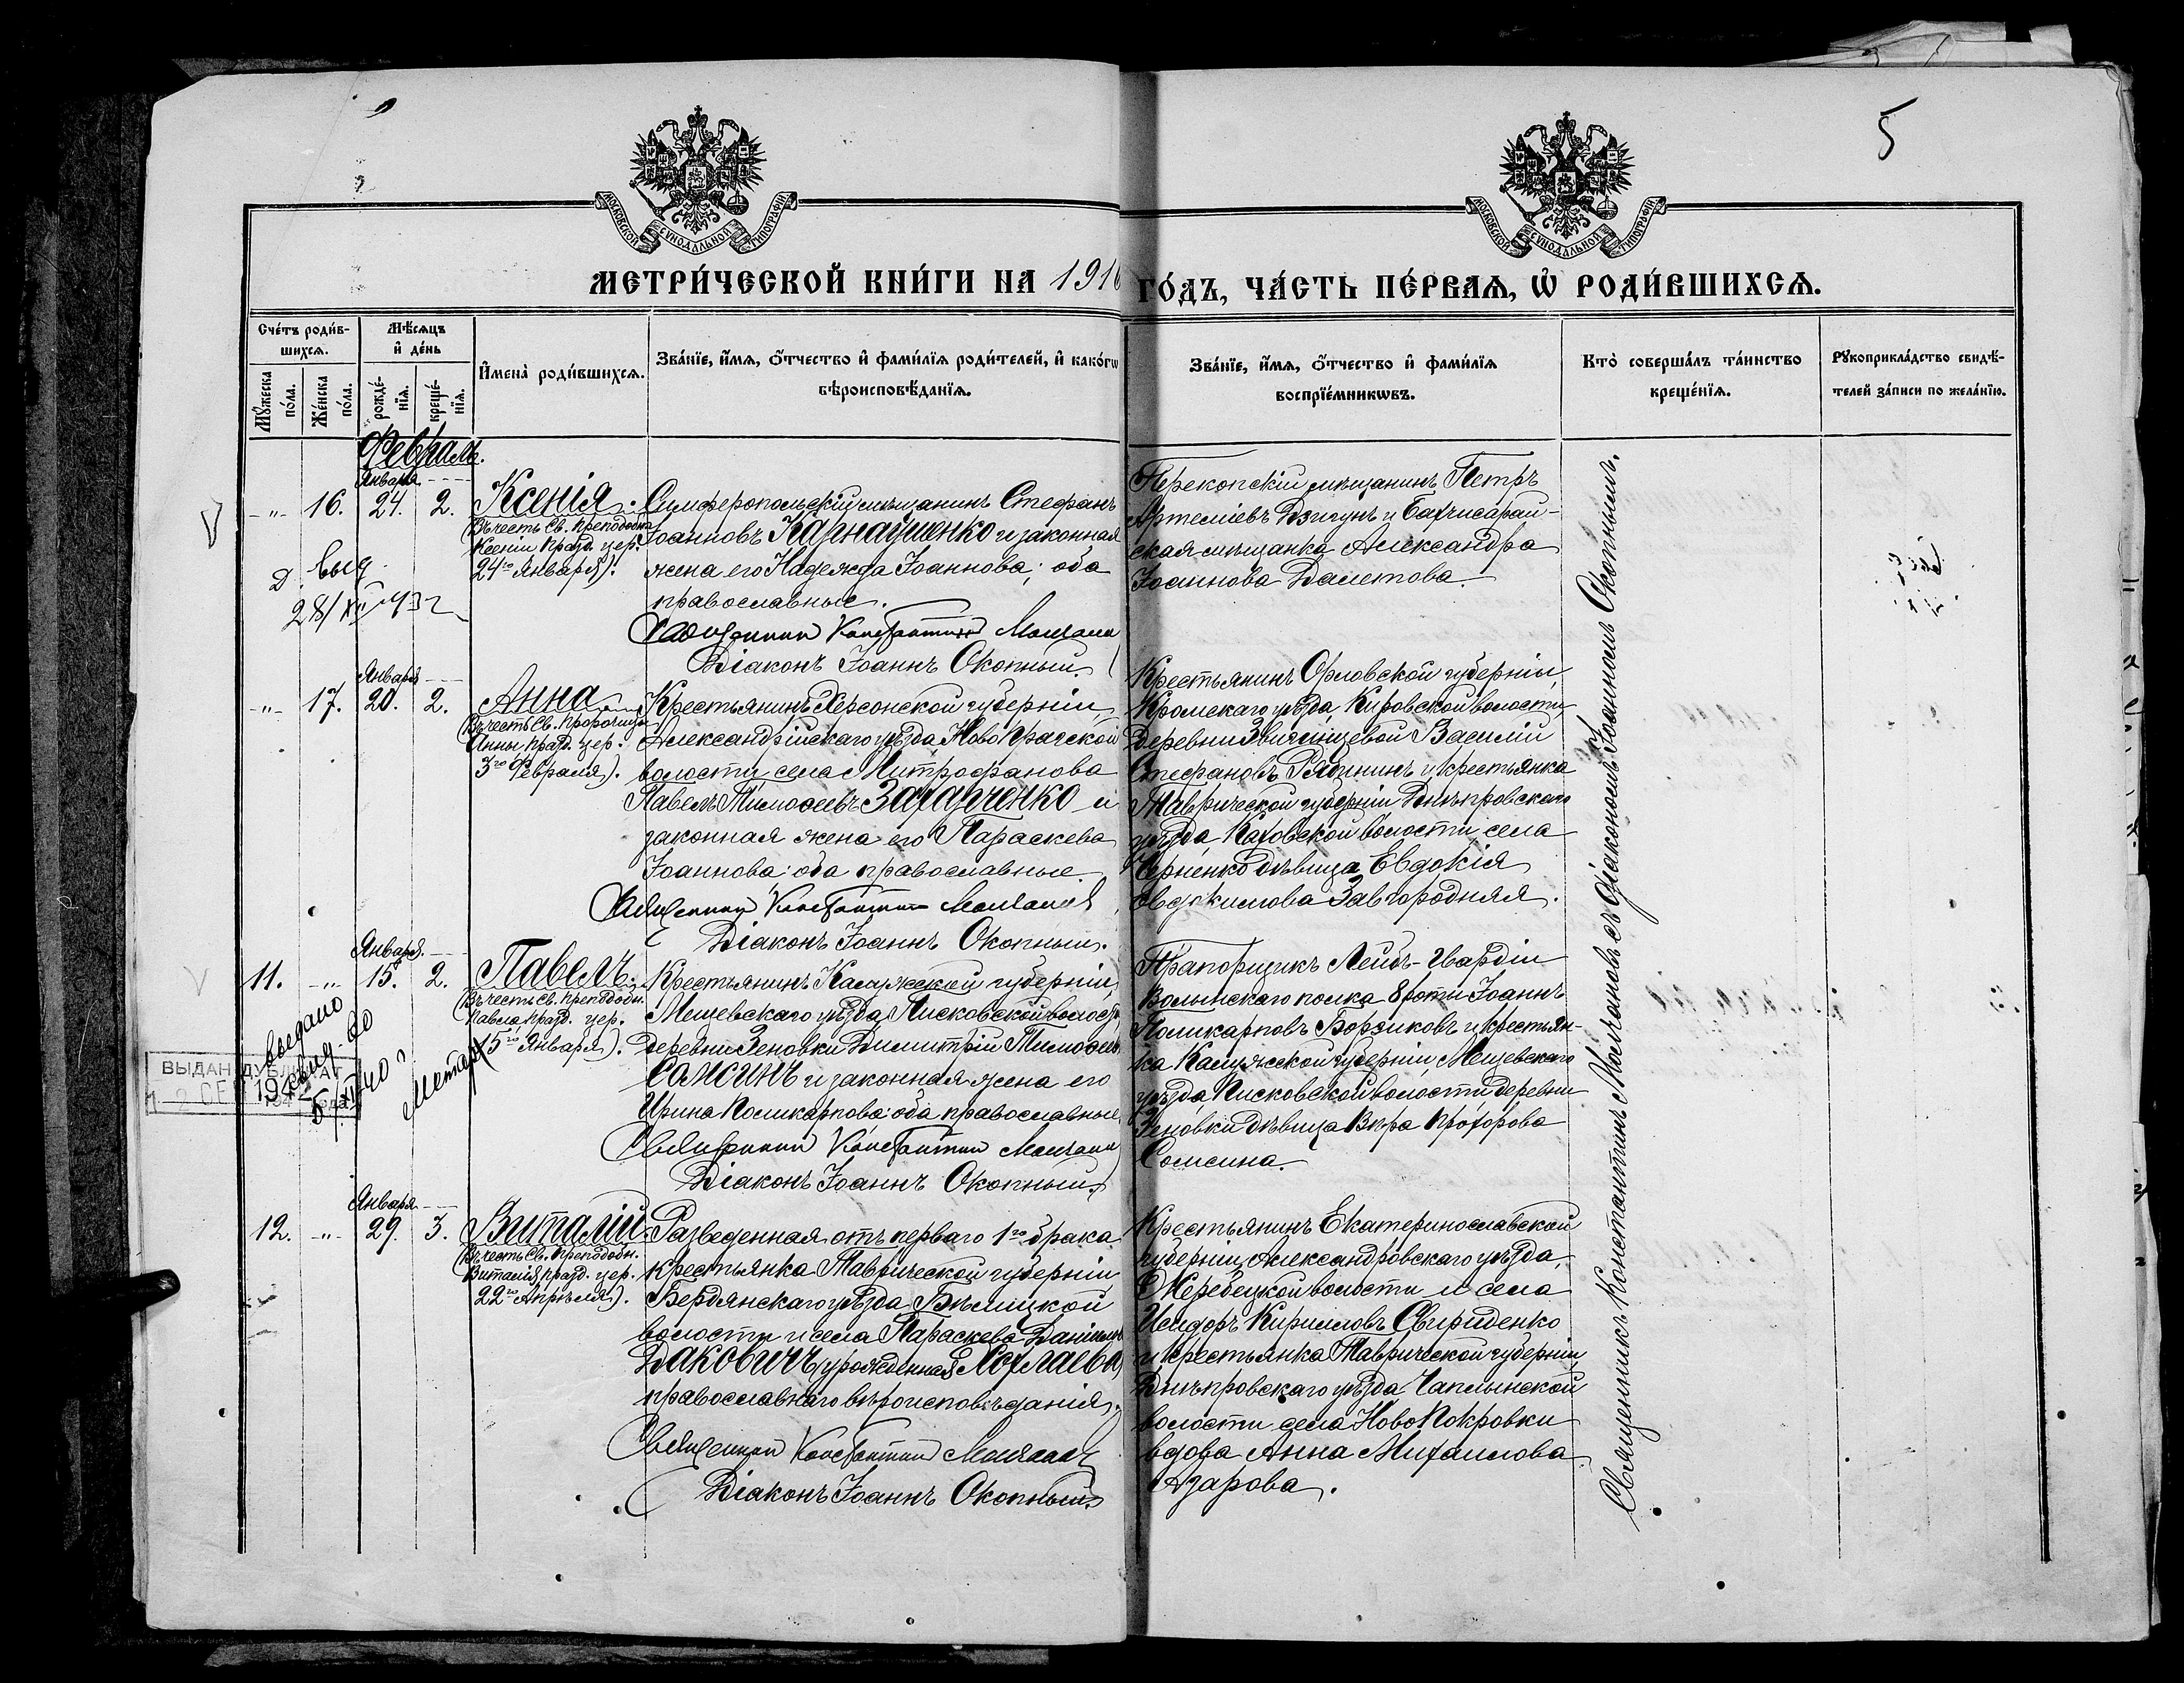 5
МОСКОВСКОЙ СѴНОДАЛЬНОЙ ТИПОГРАФІИ
МОСКОВСКОЙ СѴНОДАЛЬНОЙ ТИПОГРАФІИ
МЕТРИ́ЧЕСКОЙ КНИ́ГИ НА 1916 ГО́ДЪ, ЧА́СТЬ ПЕ́РВАѦ, Ѡ҆ РОДИ́ВШИХСѦ.
Сче́тъ роди́в-
шихсѧ.
Мꙋ́жеска
по́ла.
Же́нска
по́ла.
Мѣ́сѧцъ
и҆ де́нь
рожде́-
нїѧ.
креще́-
нїѧ.
И҆мена̀ роди́вшихсѧ.
Зва́нїе, и҆́мѧ, ѻ҆́тчество и҆ фами́лїѧ роди́телей, и҆ како́гѡ
вѣроисповѣ́данїѧ.
Зва́нїе, и҆́мѧ, ѻ҆́тчество и҆ фами́лїѧ
воспрїе́мникѡвъ.
Кто̀ соверша́лъ та́инство
креще́нїѧ.
Рꙋкоприкла́дство свидѣ́-
телей за́писи по жела́нїю.
Февраль.
Января
-"- 16. 24. 2.
Ксенія.
(Въ честь Св. преподобн.
Ксеніи празд. цер.
24го Января).
Симферопольскій мѣщанинъ Стефанъ
Іоанновъ Карнаушенко и законная
жена его Надежда Іоаннова; оба
православные.
Священникъ Константинъ Молчановъ
Діаконъ Іоаннъ Окопный.
Перекопскій мѣщанинъ Петръ
Артеміевъ Дзигунъ и Бахчисарай-
ская мѣщанка Александра
Іоаннова Далетова.
Д. выд.
28/XII
Января
-"- 17. 20. 2.
Анна
(Въ честь Св. Пророчицы
Анны празд. цер.
3го Февраля).
Крестьянинъ Херсонской губерніи,
Александрійскаго уѣзда, Ново Прагской
волости, села Митрофанова
Павелъ Тимоѳеевъ Захарченко и
законная жена его Параскева
Іоаннова: оба православные.
Священникъ Константинъ Молчановъ
Діаконъ Іоаннъ Окопный.
Крестьянинъ Орловской губерніи,
Кромскаго уѣзда, Кировской волости,
деревни Василій
Стефановъ Рябининъ и крестьянка
Таврической губерніи Днѣпровскаго
уѣзда, Каховской волости, села
Черненко дѣвица Евдокія
Евдокимова Завгородняя.
Января.
11. -"- 15. 2.
Павелъ.
(Въ честь Св. преподобн.
Павла празд. цер.
15го Января).
Крестьянинъ Калужской губерніи,
Мещевскаго уѣзда, Писковской волости
деревни Зеновки Димитрій Тимоѳеевъ
Сомсинъ и законная жена его
Ирина Поликарпова: оба православные.
Священникъ Константинъ Молчановъ
Діаконъ Іоаннъ Окопный
Прапорщикъ Лейбъ-Гвардіи
Волынскаго полка 8 роты Іоаннъ
Поликарповъ Борзиковъ и крестьян-
ка Калужской губерніи, Мещевскаго
уѣзда Писковской волости деревни
Зеновки дѣвица Вѣра Прохорова
Сомсина.
выдано
ВЫДАН ДУБЛИКАТ
Января
12. -"- 29. 3.
Виталій
(Въ честь Св. Преподобн.
Виталія празд. цер.
22го Апрѣля).
Разведенная отъ перваго 1го брака
крестьянка Таврической губерніи
Бердянскаго уѣзда, Бѣлицкой
волости и села Параскева Даніилова
Даковичъ (урожденная Хохлаева)
православнаго вѣроисповѣданія.
Священникъ Константинъ Молчановъ
Діаконъ Іоаннъ Окопный
Крестьянинъ Екатеринославской
губерніи, Александровскаго уѣзда,
Жеребецкой волости и села
Исидоръ Кирилловъ Свириденко
и крестьянка Таврической губерніи,
Днѣпровскаго уѣзда Чаплынской
волости села Ново Покровки
вдова Анна Михаилова
Азарова.
Священникъ Константинъ Молчановъ съ діакономъ Іоанномъ Окопнымъ.